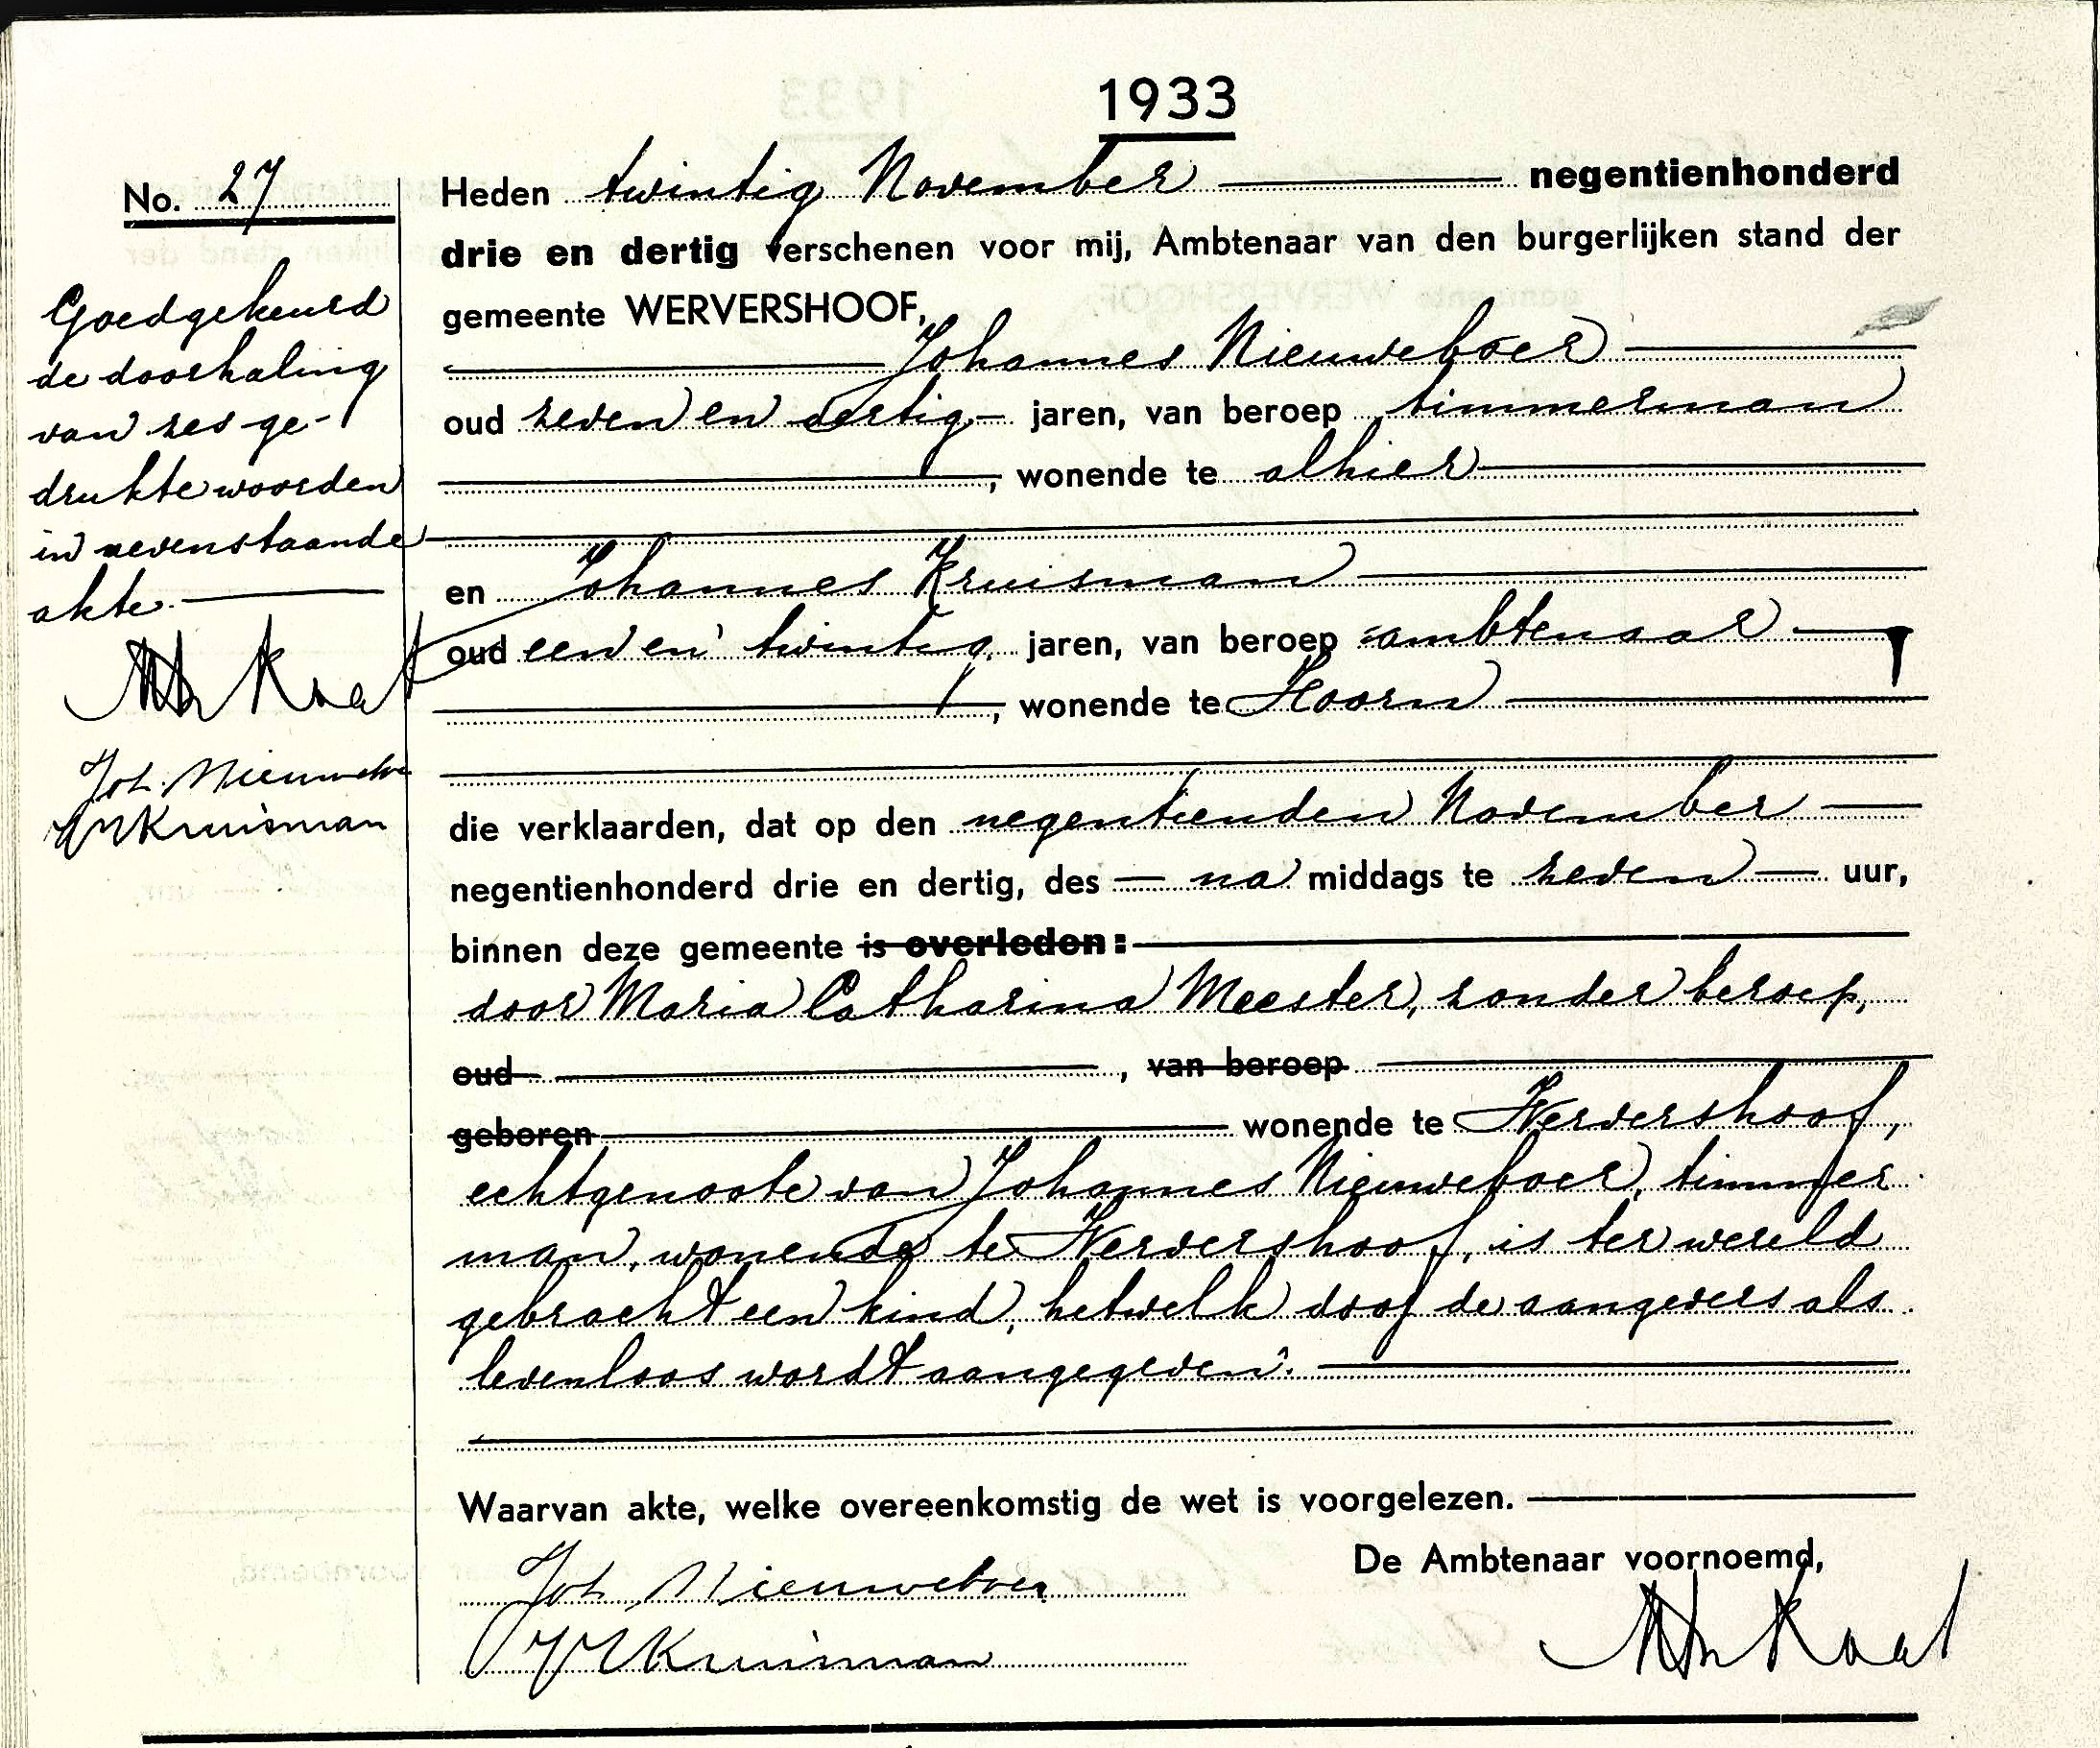 1933
No. 27
Heden twintig November negentienhonderd
drie en dertig verschenen voor mij, Ambtenaar van den burgerlijken stand der
gemeente WERVERSHOOF,
Johannes Nieuweboer
oud zeven en dertig jaren, van beroep timmerman
, wonende te alhier
en Johannes Kruisman
oud een en twintig jaren, van beroep ambtenaar
, wonende te Hoorn
die verklaarden, dat op den negentienden November
negentienhonderd drie en dertig, des na middags te zeven uur,
binnen deze gemeente is overleden:
door Maria Catharina Meester, zonder beroep,
oud , van beroep
geboren wonende te Wervershoof,
echtgenoote van Johannes Nieuweboer, timmer
man, wonende te Wervershoof, is ter wereld
gebracht een kind, hetwelk door de aangevers als
levenloos wordt aangegeven.
Waarvan akte, welke overeenkomstig de wet is voorgelezen.
De Ambtenaar voornoemd,
Joh Nieuweboer
Kruisman
Goedgekeurd
de doorhaling
van zes ge-
drukte woorden
in nevenstaande
akte.
Joh. Nieuwebo
Kruisman